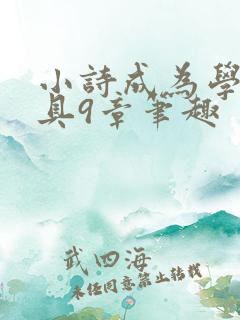 小詩成為學
具9章筆趣
武四海
未經同意禁止轉載